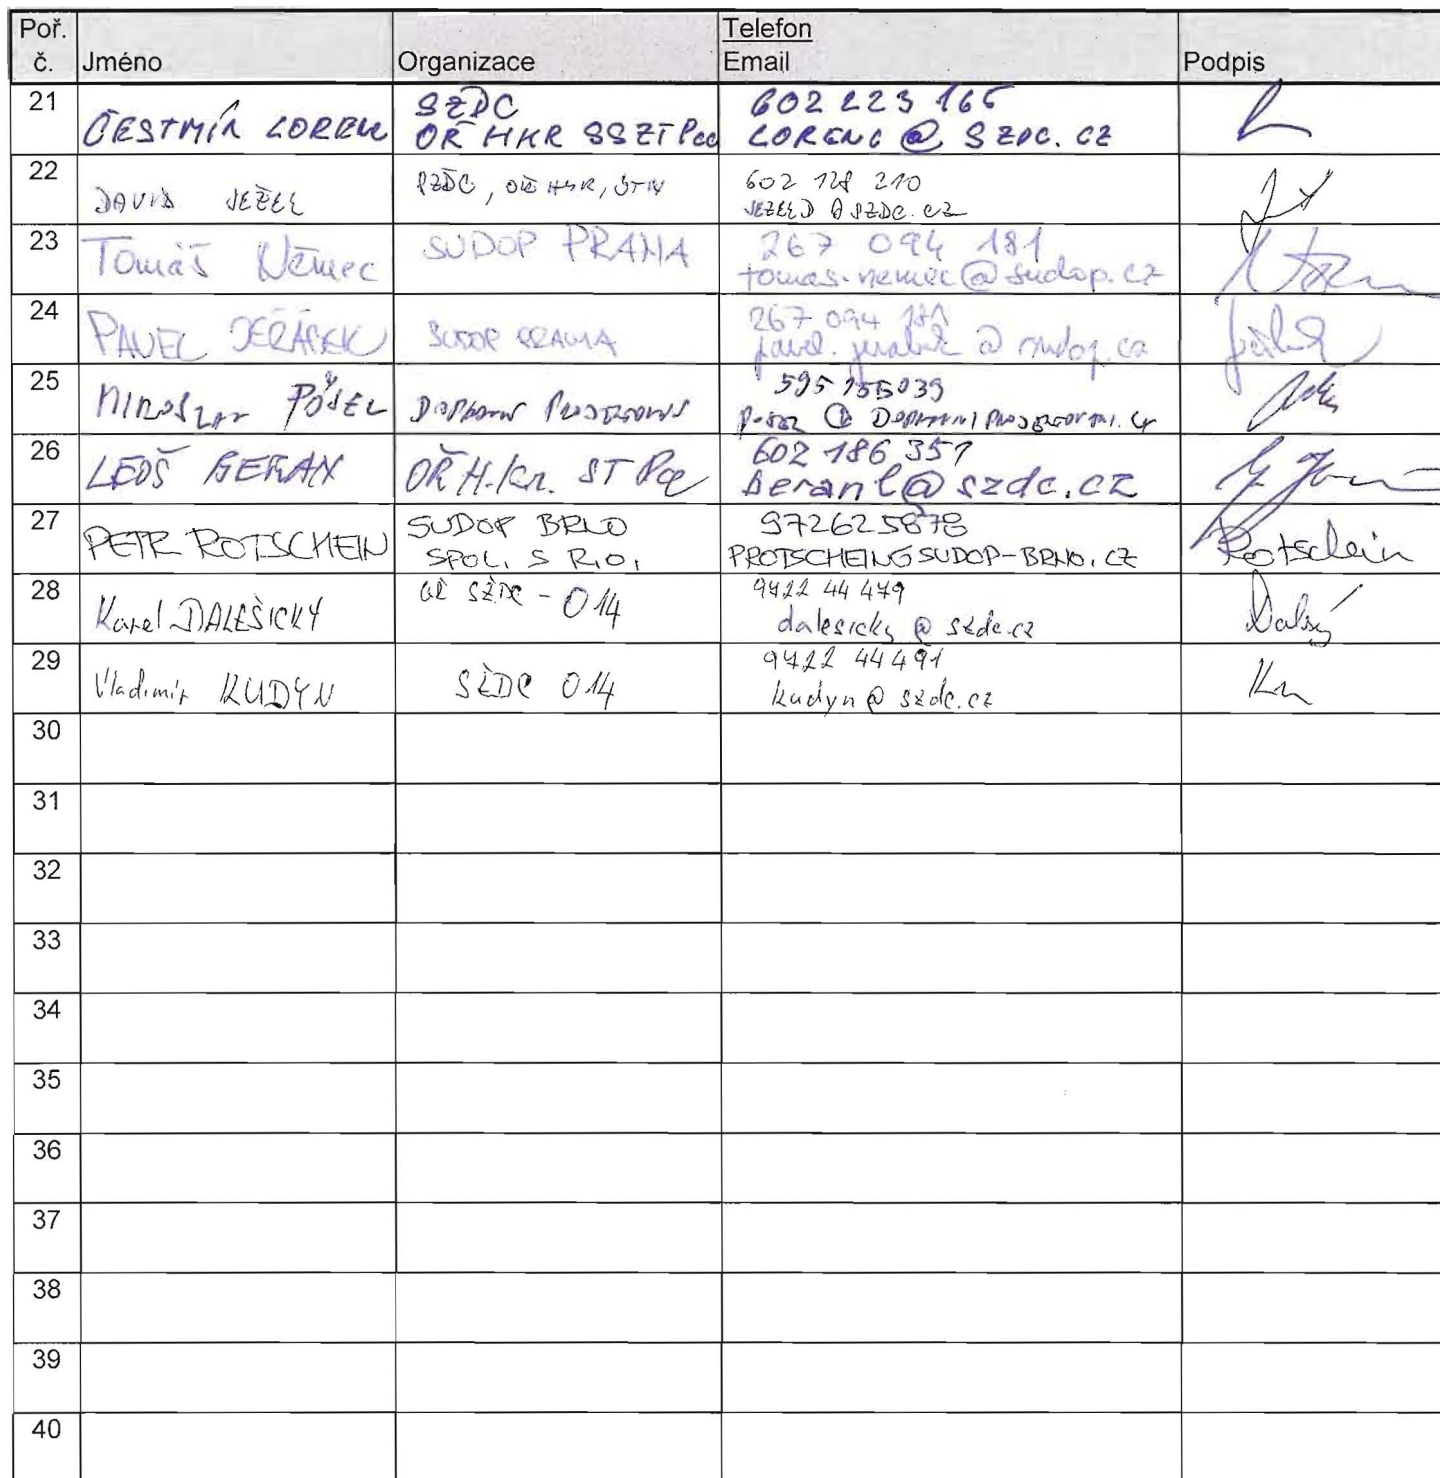 Poř. č. Jméno Organizace Telefon Email Podpis
21 ČESTMÍR LORENC SŽDC 602 223 165
OŘ HKR SSZT Pce LORENC@SZDC.CZ
22 DAVID JEŽEK SŽDC, OŘ HKR, 602 128 210
JEZEKD@SZDC.CZ
23 Tomáš Němec SUDOP PRAHA 267 094 181
tomas.nemec@sudop.cz
24 PAVEL JEŘÁBEK SUDOP PRAHA 267 094 181
pavel.jerabek@sudop.cz
25 MIROSLAV POSEL DOPRAVNÍ PROJEKTOVÁNÍ 595 155039
26 LEOŠ BERAN OŘ H.Kr. ST Pce 602 186 351
beranl@szdc.cz
27 PETR ROTSCHEIN SUDOP BRNO 972625878 Rotschein
SPOL. S R.O. PROTSCHEIN@SUDOP-BRNO.CZ
28 Karel DALEŠICKÝ GŘ SŽDC - O14 9722 44 479
dalesicky@szdc.cz
29 Vladimír KUDYN SŽDC O14 9722 44 491
kudyn@szdc.cz
30
31
32
33
34
35
36
37
38
39
40